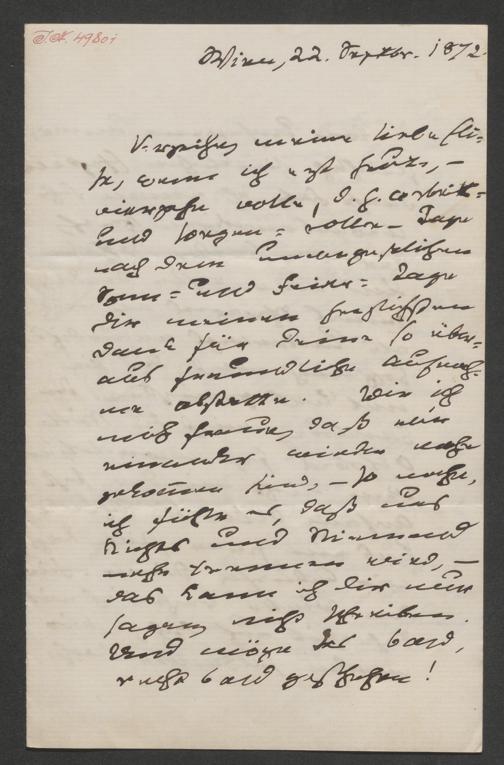 I.N. 49801
Wien, 22. Septbr. 1872.
Verzeihe, meine liebe Eli-
se, wenn ich erst heute, –
vierzehn volle, d. h. arbeit-
und sorgen-volle – Tage
nach dem unvergeßlichen
Sonn- und Feier-Tage
Dir meinen herzlichsten
Dank für Deine so über-
aus freundliche Aufnah-
me abstatte. Wie ich
mich freue, daß wir
einander wieder nahe
gekommen sind, – so nahe,
ich fühle es, daß uns
Nichts und Niemand
mehr trennen wird, –
das kann ich Dir nur
sagen, nicht schreiben.
Und möge das bald,
recht bald geschehen!